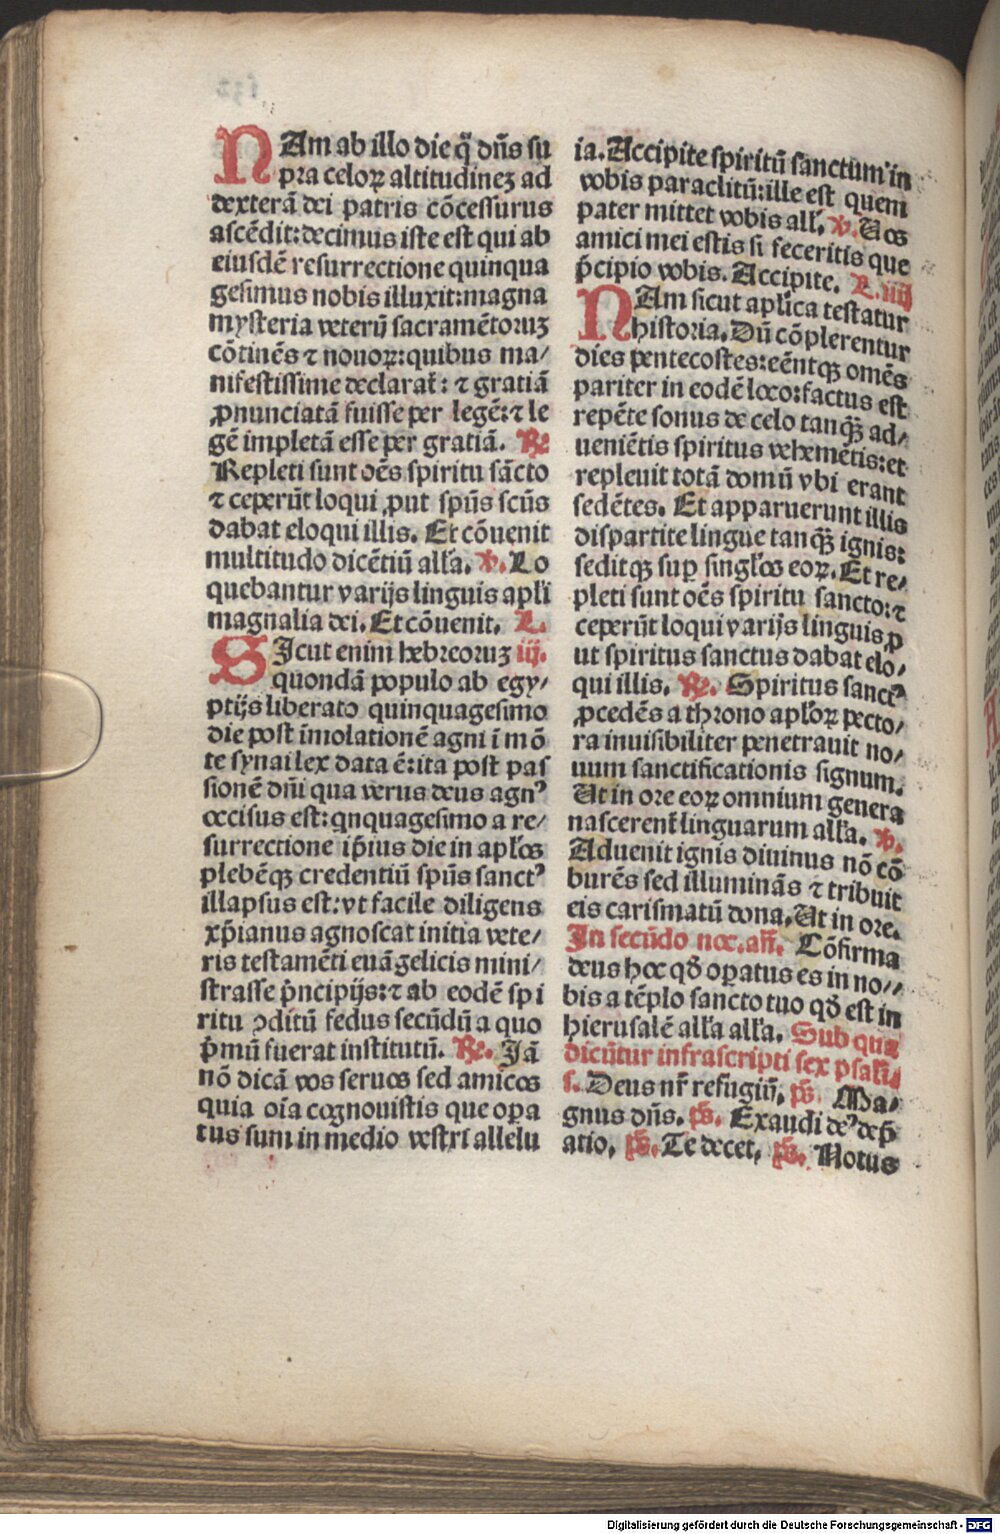 NAm ab illo die q̃ dñs su
pra celoꝝ altitudineꝫ ad
dexterã dei patris cõcessurus
ascẽdit: decimus iste est qui ab
eiusdẽ resurrectione quinqua
gesimus nobis illuxit: magna
mysteria veterũ sacramẽtoruꝫ
cõtinẽs ⁊ nouoꝝ: quibus ma/
nifestissime declarat̃: ⁊ gratiã
ꝓnunciatã fuisse per legẽ: ⁊ le
gẽ impletã esse per gratiã. ℟
Repleti sunt oẽs spiritu sãcto
⁊ ceperũt loqui ꝓut spũs scũs
dabat eloqui illis. Et cõuenit
multitudo dicẽtiũ alľa. ℣. Lo
quebantur varijs linguis apľi
magnalia dei. Et cõuenit. L.
SIcut enim hebreoruꝫ iij.
quondã populo ab egy/
ptijs liberato quinquagesimo
die post ĩmolationẽ agni ĩ mõ
te synai lex data ẽ: ita post pas
sionẽ dñi qua verus deus agnꝰ
occisus est: qnquagesimo a re/
surrectione ip̃ius die in apľos
plebẽqꝫ credentiũ spũs sanctꝰ
illapsus est: vt facile diligens
xp̃ianus agnoscat initia vete/
ris testamẽti euãgelicis mini/
strasse p̃ncipijs: ⁊ ab eodẽ spi
ritu ꝯditũ fedus secũdũ a quo
p̃mũ fuerat institutũ. ℟. Iã
nõ dicã vos seruos sed amicos
quia oĩa cognouistis que oꝑa
tus sum in medio vestri allelu
ia. Accipite spiritũ sanctum in
vobis paraclitũ: ille est quem
pater mittet vobis alľ. ℣. Uos
amici mei estis si feceritis que
p̃cipio vobis. Accipite. L. iiij
NAm sicut apľica testatur
historia. Dũ cõplerentur
dies pentecostes: eẽntqꝫ omẽs
pariter in eodẽ loco: factus est
repẽte sonus de celo tanqꝫ̃ ad/
ueniẽtis spiritus vehemẽtis: et
repleuit totã domũ vbi erant
sedẽtes. Et apparuerunt illis
dispartite lingue tanqꝫ̃ ignis:
seditqꝫ suꝑ singľos eoꝝ. Et re/
pleti sunt oẽs spiritu sancto: ⁊
ceperũt loqui varijs linguis ꝓ
ut spiritus sanctus dabat elo/
qui illis. ℟. Spiritus sanctꝰ
ꝓcedẽs a throno apľoꝝ pecto/
ra inuisibiliter penetrauit no/
uum sanctificationis signum.
Ut in ore eoꝝ omnium genera
nascerent̃ linguarum alľa. ℣.
Aduenit ignis diuinus nõ cõ
burẽs sed illuminãs ⁊ tribuit
eis carismatũ dona. Ut in ore.
In secũdo noc. añ. Cõfirma
deus hoc qd̃ oꝑatus es in no//
bis a tẽplo sancto tuo qd̃ est in
hierusalẽ alľa alľa. Sub qua
dicũtur infrascripti sex psalmi
s. Deus nr̃ refugiũ. p̃s. Ma/
gnus dñs. p̃s. Exaudi deꝰ dep̃
atio. p̃s. Te decet. p̃s. Notus
Digitalisierung gefördert durch die Deutsche Forschungsgemeinschaft - DFG